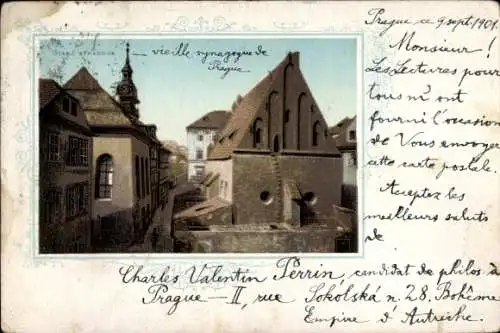 Prague ce 9 sept. 1901.
vieille synagogue de
Prague
Monsieur!
Les Lectures pour
tous m'ont
fourni l'occasion
de Vous envoyer
cette carte postale.
Acceptez les
meilleurs saluts
de
Charles Valentin Perrin, candidat de philos. à
Prague - II, rue Sokolská n. 28. Bohême
Empire d'Autriche.